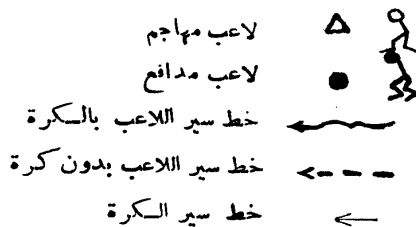 لاعب مهاجم
لاعب مدافع
خط سير اللاعب بالكرة
خط سير اللاعب بدون كرة
خط سير الكرة